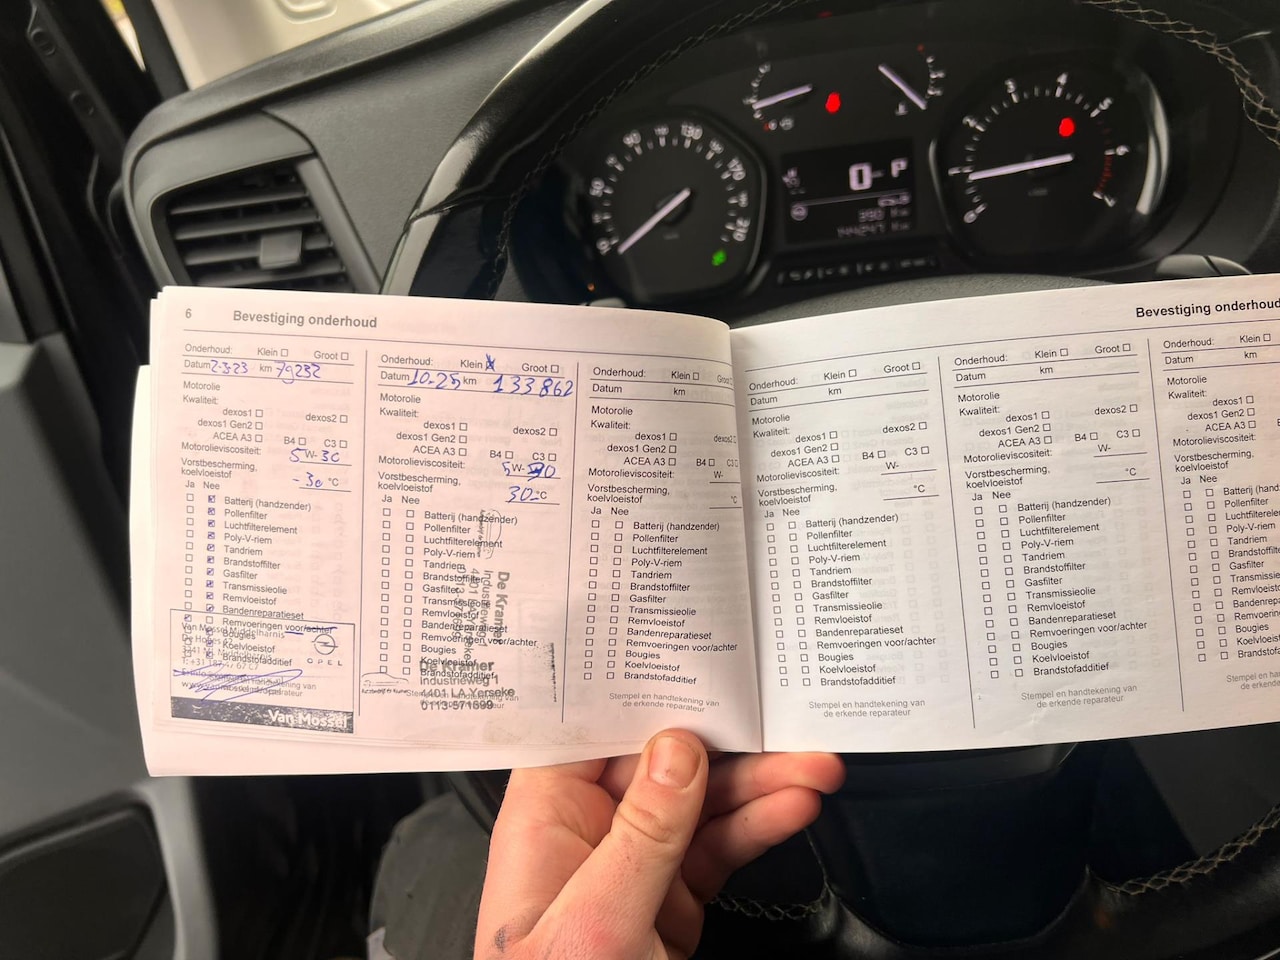 6 Bevestiging onderhoud
Onderhoud: Klein ☐ Groot ☐
Datum 2-3-23 km 79232
Motorolie
Kwaliteit:
dexos1 ☐ dexos2 ☐
dexos1 Gen2 ☐
ACEA A3 ☐ B4 ☐ C3 ☐
Motorolieviscositeit: 5 W- 30
Vorstbescherming,
koelvloeistof -30 °C
Ja Nee
Batterij (handzender)
Pollenfilter
Luchtfilterelement
Poly-V-riem
Tandriem
Brandstoffilter
Gasfilter
Transmissieolie
Remvloeistof
Bandenreparatieset
Remvoeringen voor/achter
Bougies
Koelvloeistof
Brandstofadditief
Van Mossel Middelharnis
OPEL
Van Mossel
Onderhoud: Klein ☒ Groot ☐
Datum 10-25 km 133862
Motorolie
Kwaliteit:
dexos1 ☐ dexos2 ☐
dexos1 Gen2 ☐
ACEA A3 ☐ B4 ☐ C3 ☐
Motorolieviscositeit: 5 W-
Vorstbescherming,
koelvloeistof 30 °C
Ja Nee
Batterij (handzender)
Pollenfilter
Luchtfilterelement
Poly-V-riem
Tandriem
Brandstoffilter
Gasfilter
Transmissieolie
Remvloeistof
Bandenreparatieset
Remvoeringen voor/achter
Bougies
Koelvloeistof
Brandstofadditief
De Kramer
Industrieweg 1
4401 LA Yerseke
0113-571699
De Kramer
Industrieweg 1
4401 LA Yerseke
0113-571699
Onderhoud: Klein ☐ Groot
Datum km
Motorolie
Kwaliteit:
dexos1 ☐ dexos2
dexos1 Gen2 ☐
ACEA A3 ☐ B4 ☐ C3 ☐
Motorolieviscositeit: W-
Vorstbescherming,
koelvloeistof °C
Ja Nee
Batterij (handzender)
Pollenfilter
Luchtfilterelement
Poly-V-riem
Tandriem
Brandstoffilter
Gasfilter
Transmissieolie
Remvloeistof
Bandenreparatieset
Remvoeringen voor/achter
Bougies
Koelvloeistof
Brandstofadditief
Stempel en handtekening van
de erkende reparateur
Bevestiging onderhoud
Onderhoud: Klein ☐ Groot ☐
Datum km
Motorolie
Kwaliteit:
dexos1 ☐ dexos2 ☐
dexos1 Gen2 ☐
ACEA A3 ☐ B4 ☐ C3 ☐
Motorolieviscositeit: W-
Vorstbescherming,
koelvloeistof °C
Ja Nee
Batterij (handzender)
Pollenfilter
Luchtfilterelement
Poly-V-riem
Tandriem
Brandstoffilter
Gasfilter
Transmissieolie
Remvloeistof
Bandenreparatieset
Remvoeringen voor/achter
Bougies
Koelvloeistof
Brandstofadditief
Stempel en handtekening van
de erkende reparateur
Onderhoud: Klein ☐ Groot ☐
Datum km
Motorolie
Kwaliteit:
dexos1 ☐ dexos2 ☐
dexos1 Gen2 ☐
ACEA A3 ☐ B4 ☐ C3 ☐
Motorolieviscositeit: W-
Vorstbescherming,
koelvloeistof °C
Ja Nee
Batterij (handzender)
Pollenfilter
Luchtfilterelement
Poly-V-riem
Tandriem
Brandstoffilter
Gasfilter
Transmissieolie
Remvloeistof
Bandenreparatieset
Remvoeringen voor/achter
Bougies
Koelvloeistof
Brandstofadditief
Stempel en handtekening van
de erkende reparateur
Onderhoud: Klein ☐
Datum km
Motorolie
Kwaliteit:
dexos1 ☐
dexos1 Gen2 ☐
ACEA A3 ☐
Motorolieviscositeit:
Vorstbescherming,
koelvloeistof
Ja Nee
Pollenfilter
Poly-V-riem
Tandriem
Gasfilter
Remvloeistof
Bougies
Koelvloeistof
0 P
390